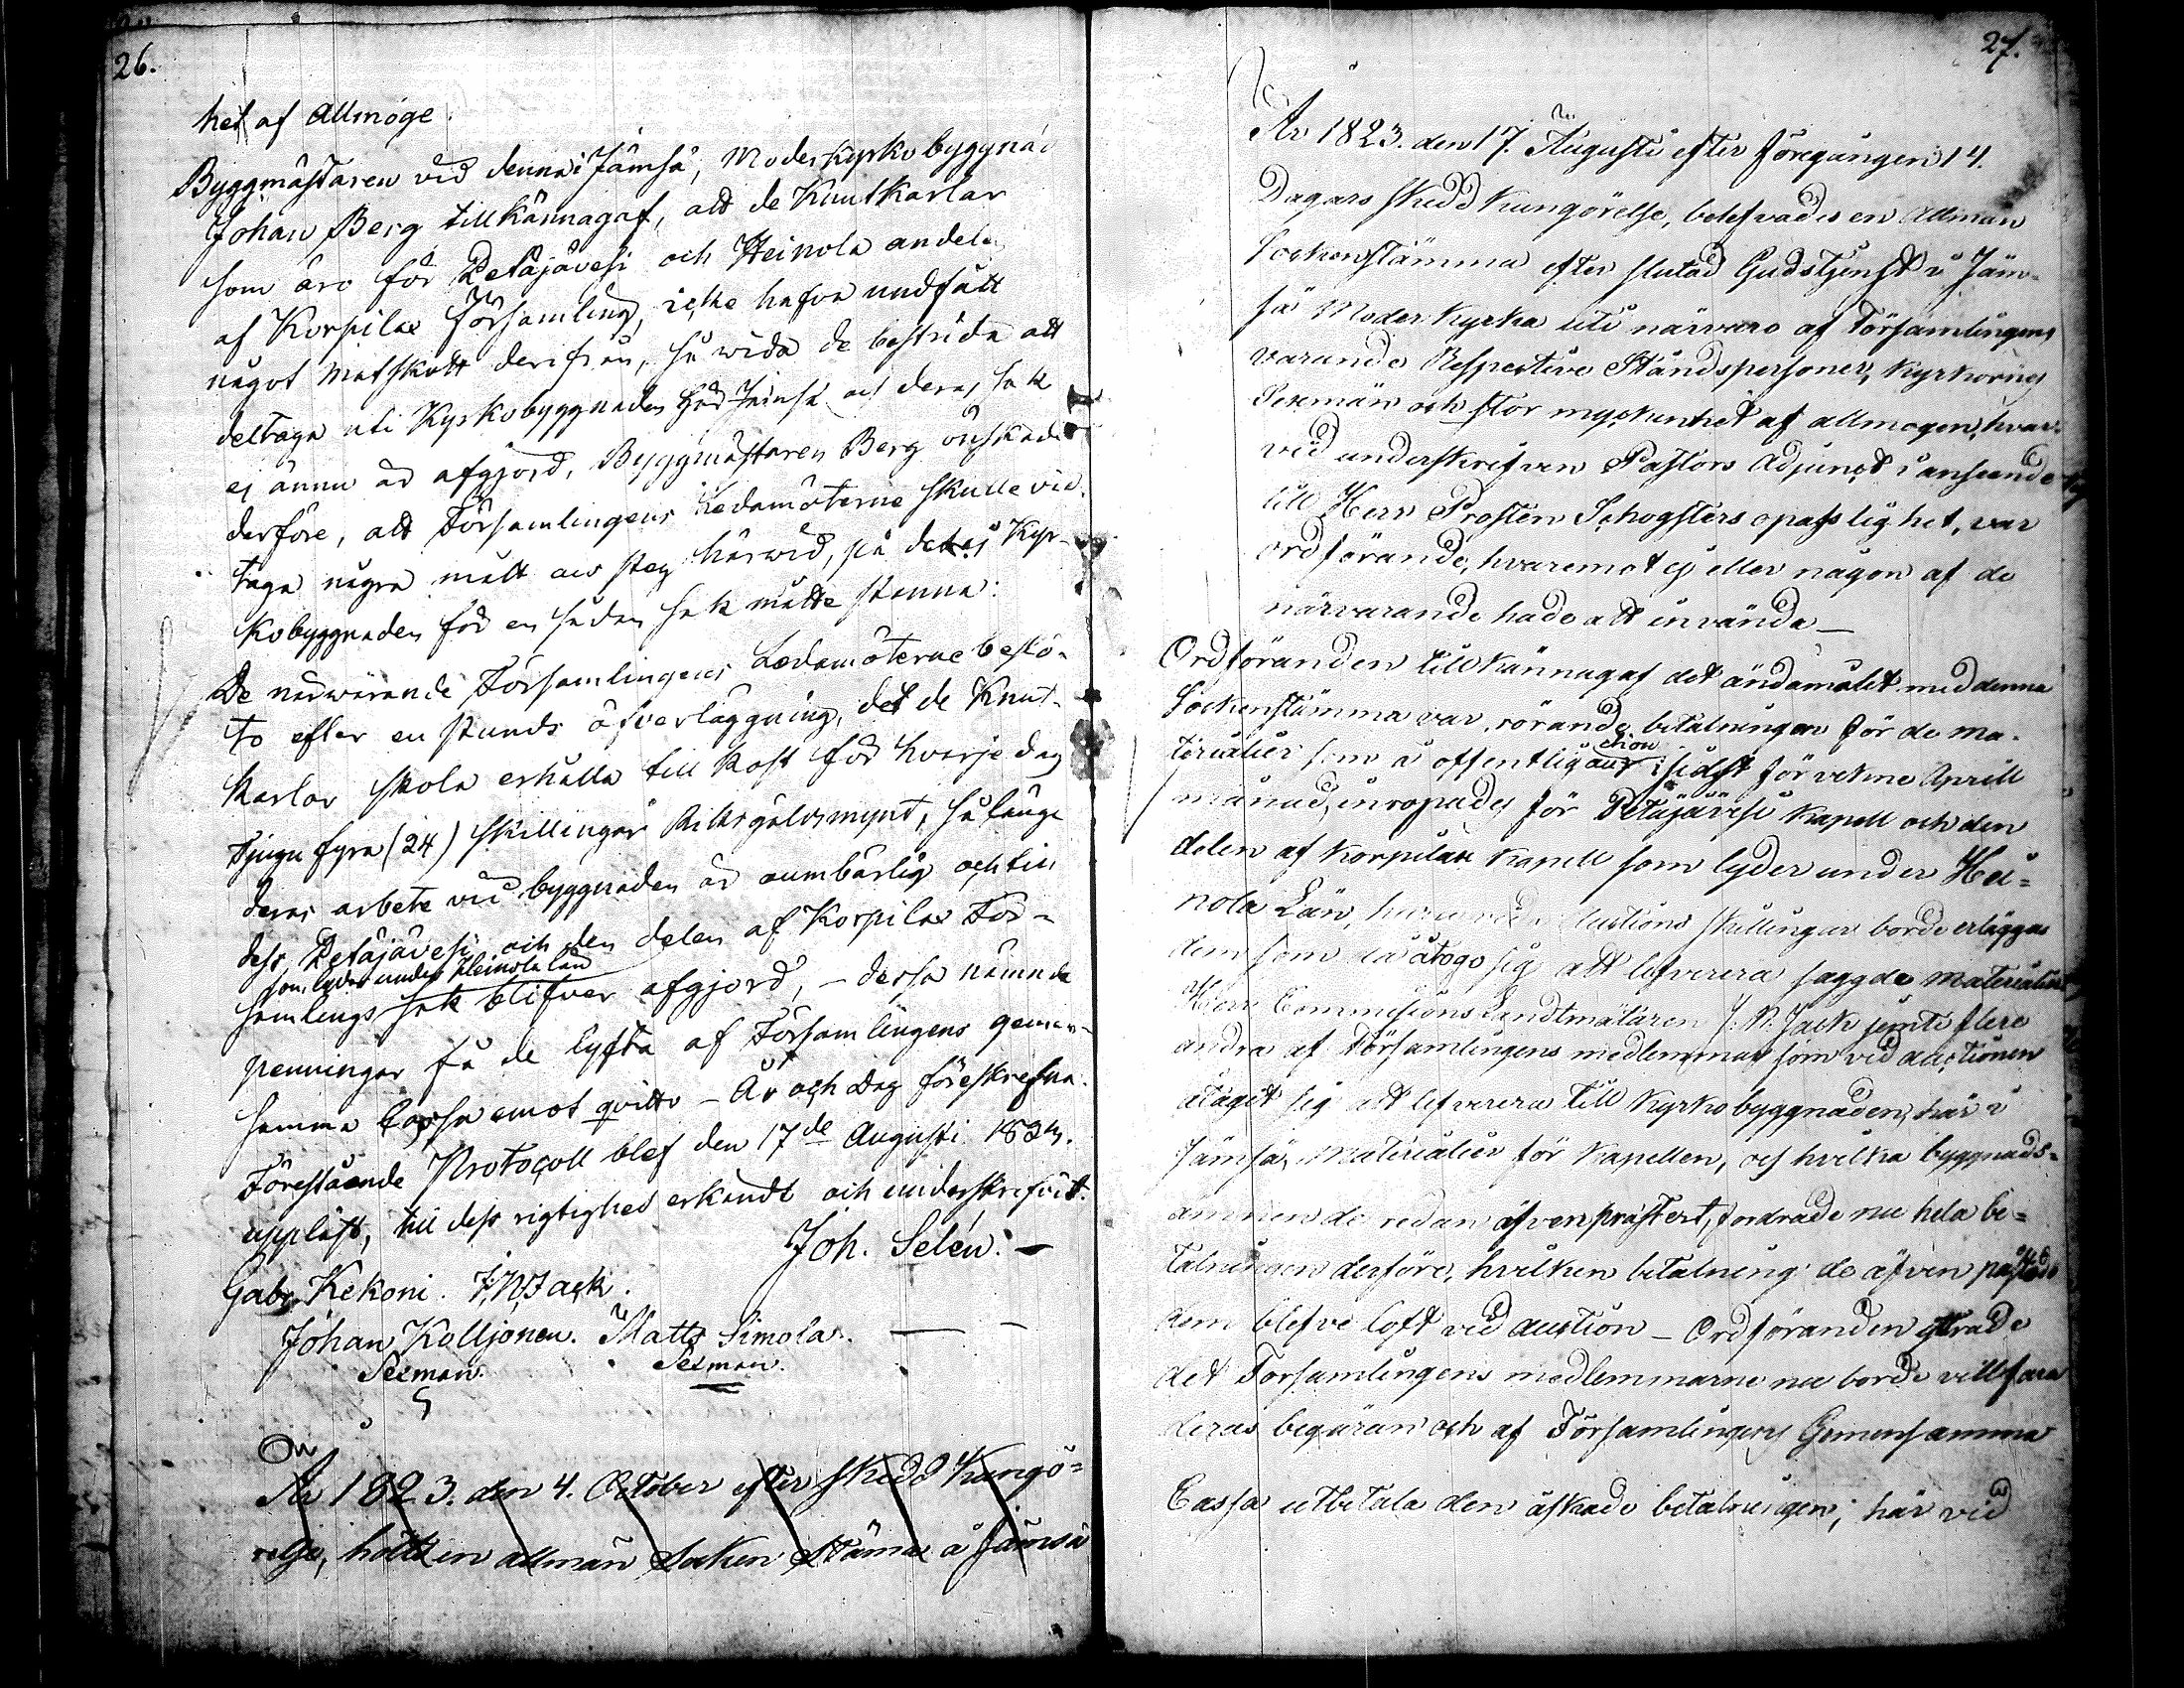 26.
het af Allmoge.
Byggmästaren vid denna i Jämsä, Moderkyrko byggnad
Johan Berg tillkännagaf, att de Knutkarlar
som äro för Petäjävesi och Heinola andelen
af Korpilax Församling, icke hafva undfått
något matskott derifrån, så wida de bestrida att
deltaga uti Kyrkobyggnaden här Jämsä och deras sak
ej ännu är afgjord, Byggmästaren Berg önskade
derföre, att Församlingens Ledamöterne skulle vid
taga några mått och steg härwid, på det ej Kyr-
kobyggnaden för en sådan sak måtte stanna:
De närwarande Församlingens Ledamöterne beslö-
to efter en stunds öfverläggning, det de Knut-
karlar skola erhålla till kost för hvarje dag
tjugu fyra (24) skillingar Riksgäldsmynt, så länge
deras arbete vid byggnaden är oumbärlig och till
dess Petäjävesi och den delen af Korpilax För-
som lyder under Heinola län
samlings sak blifver afgjord, – dessa nämnda
penningar få de lyfta af Församlingens gemen-
samma Cassa emot qvitto – År och Dag föreskrefne.
Förestående Protocoll blef den 17de Augusti 1823.
uppläst, till dess rigtighet erkändt och underskrefvit.
Joh. Selén. –
Gabr. Kekoni. J. N. Jack.
Johan Kolljonen. Matts Simola.
Sexman. Sexman.
År 1823. den 4. October efter skedd Kungö-
relse, hölts en allmän Socken Stäma i Jämsä
27.
År 1823. den 17. Augusti efter föregången 14.
Dagars skedd kungörelse, blefvades en Allmän
Sockenstämma efter slutad Gudstjenst i Jäm-
sä Moder Kyrka uti närvaro af Församlingens
varande Respective Ståndspersoner, Kyrkovärd,
Sexmän och stor myckenhet af allmogen, hvar-
vid underskrifven Pastors Adjunct i anseende
till Herr Prosten Schogsters opasslighet, var
ordförande, hvaremot ej eller någon af de
närvarande hade att invända –
Ordföranden tillkännagaf det ändamålet med denna
Sockenstämma var, rörande betalningen för de ma-
terialier som å offentlig auction sidst för vekne Aprill
månad, inropades för Petäjävesi Kapell och den
delen af Korpilax Kapell som lyder under Hei-
nola Län, auctions skillingar borde erläggas
dem som då åtogo sig att lefverera saggde materialier
Herr Commissions Landtmätaren J. N. Jack jemte flere
andra af Församlingens medlemmar som vid auctionen
åtagit sig att lefverera till Kyrkobyggnaden, här i
Jämsä, Materialier för Kapellen, och hvilka byggnads-
ämnen de redan äfven præsterat, fordrade nu hela be-
talningen derföre, hvilken betalning de äfven påstodo
dem blefve loft vid auction – Ordföranden yttrade
det Församlingens medlemmarne nu borde villfara
deras begäran och af Församlingens Gemensamma
Cassa utbetala den äskade betalningen, här vid